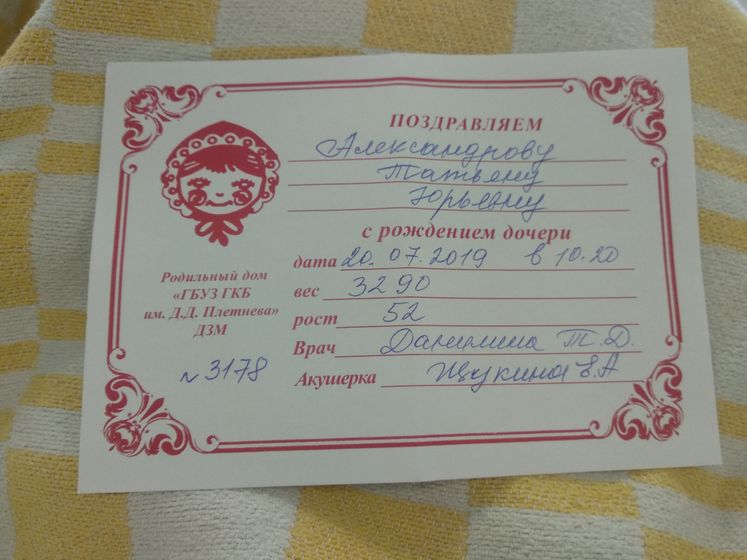 ПОЗДРАВЛЯЕМ
Александрову
Татьяну
Юрьевну
с рождением дочери
дата 20.07.2019 в 10.20
вес 3290
рост 52
Врач Данилина Т.Д.
Акушерка Щукина Е.А
Родильный дом
«ГБУЗ ГКБ
им. Д.Д. Плетнева»
ДЗМ
№ 3178